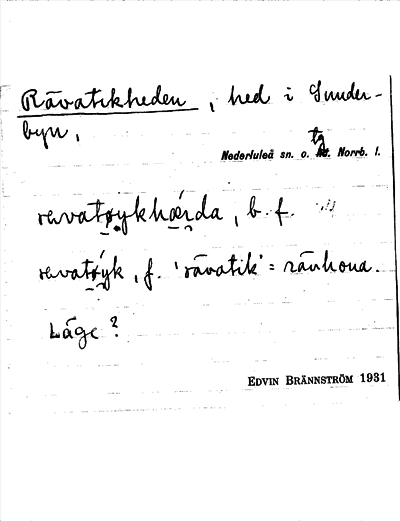 Rävatikheden, hed i Sunder-
byn.
Nederluleå sn. o. tg. Norrb. l.
revatøykhǽrda, b. f.
revatǿyk, f. 'rävatik' = rävhona.
Läge?
EDVIN BRÄNNSTRÖM 1931